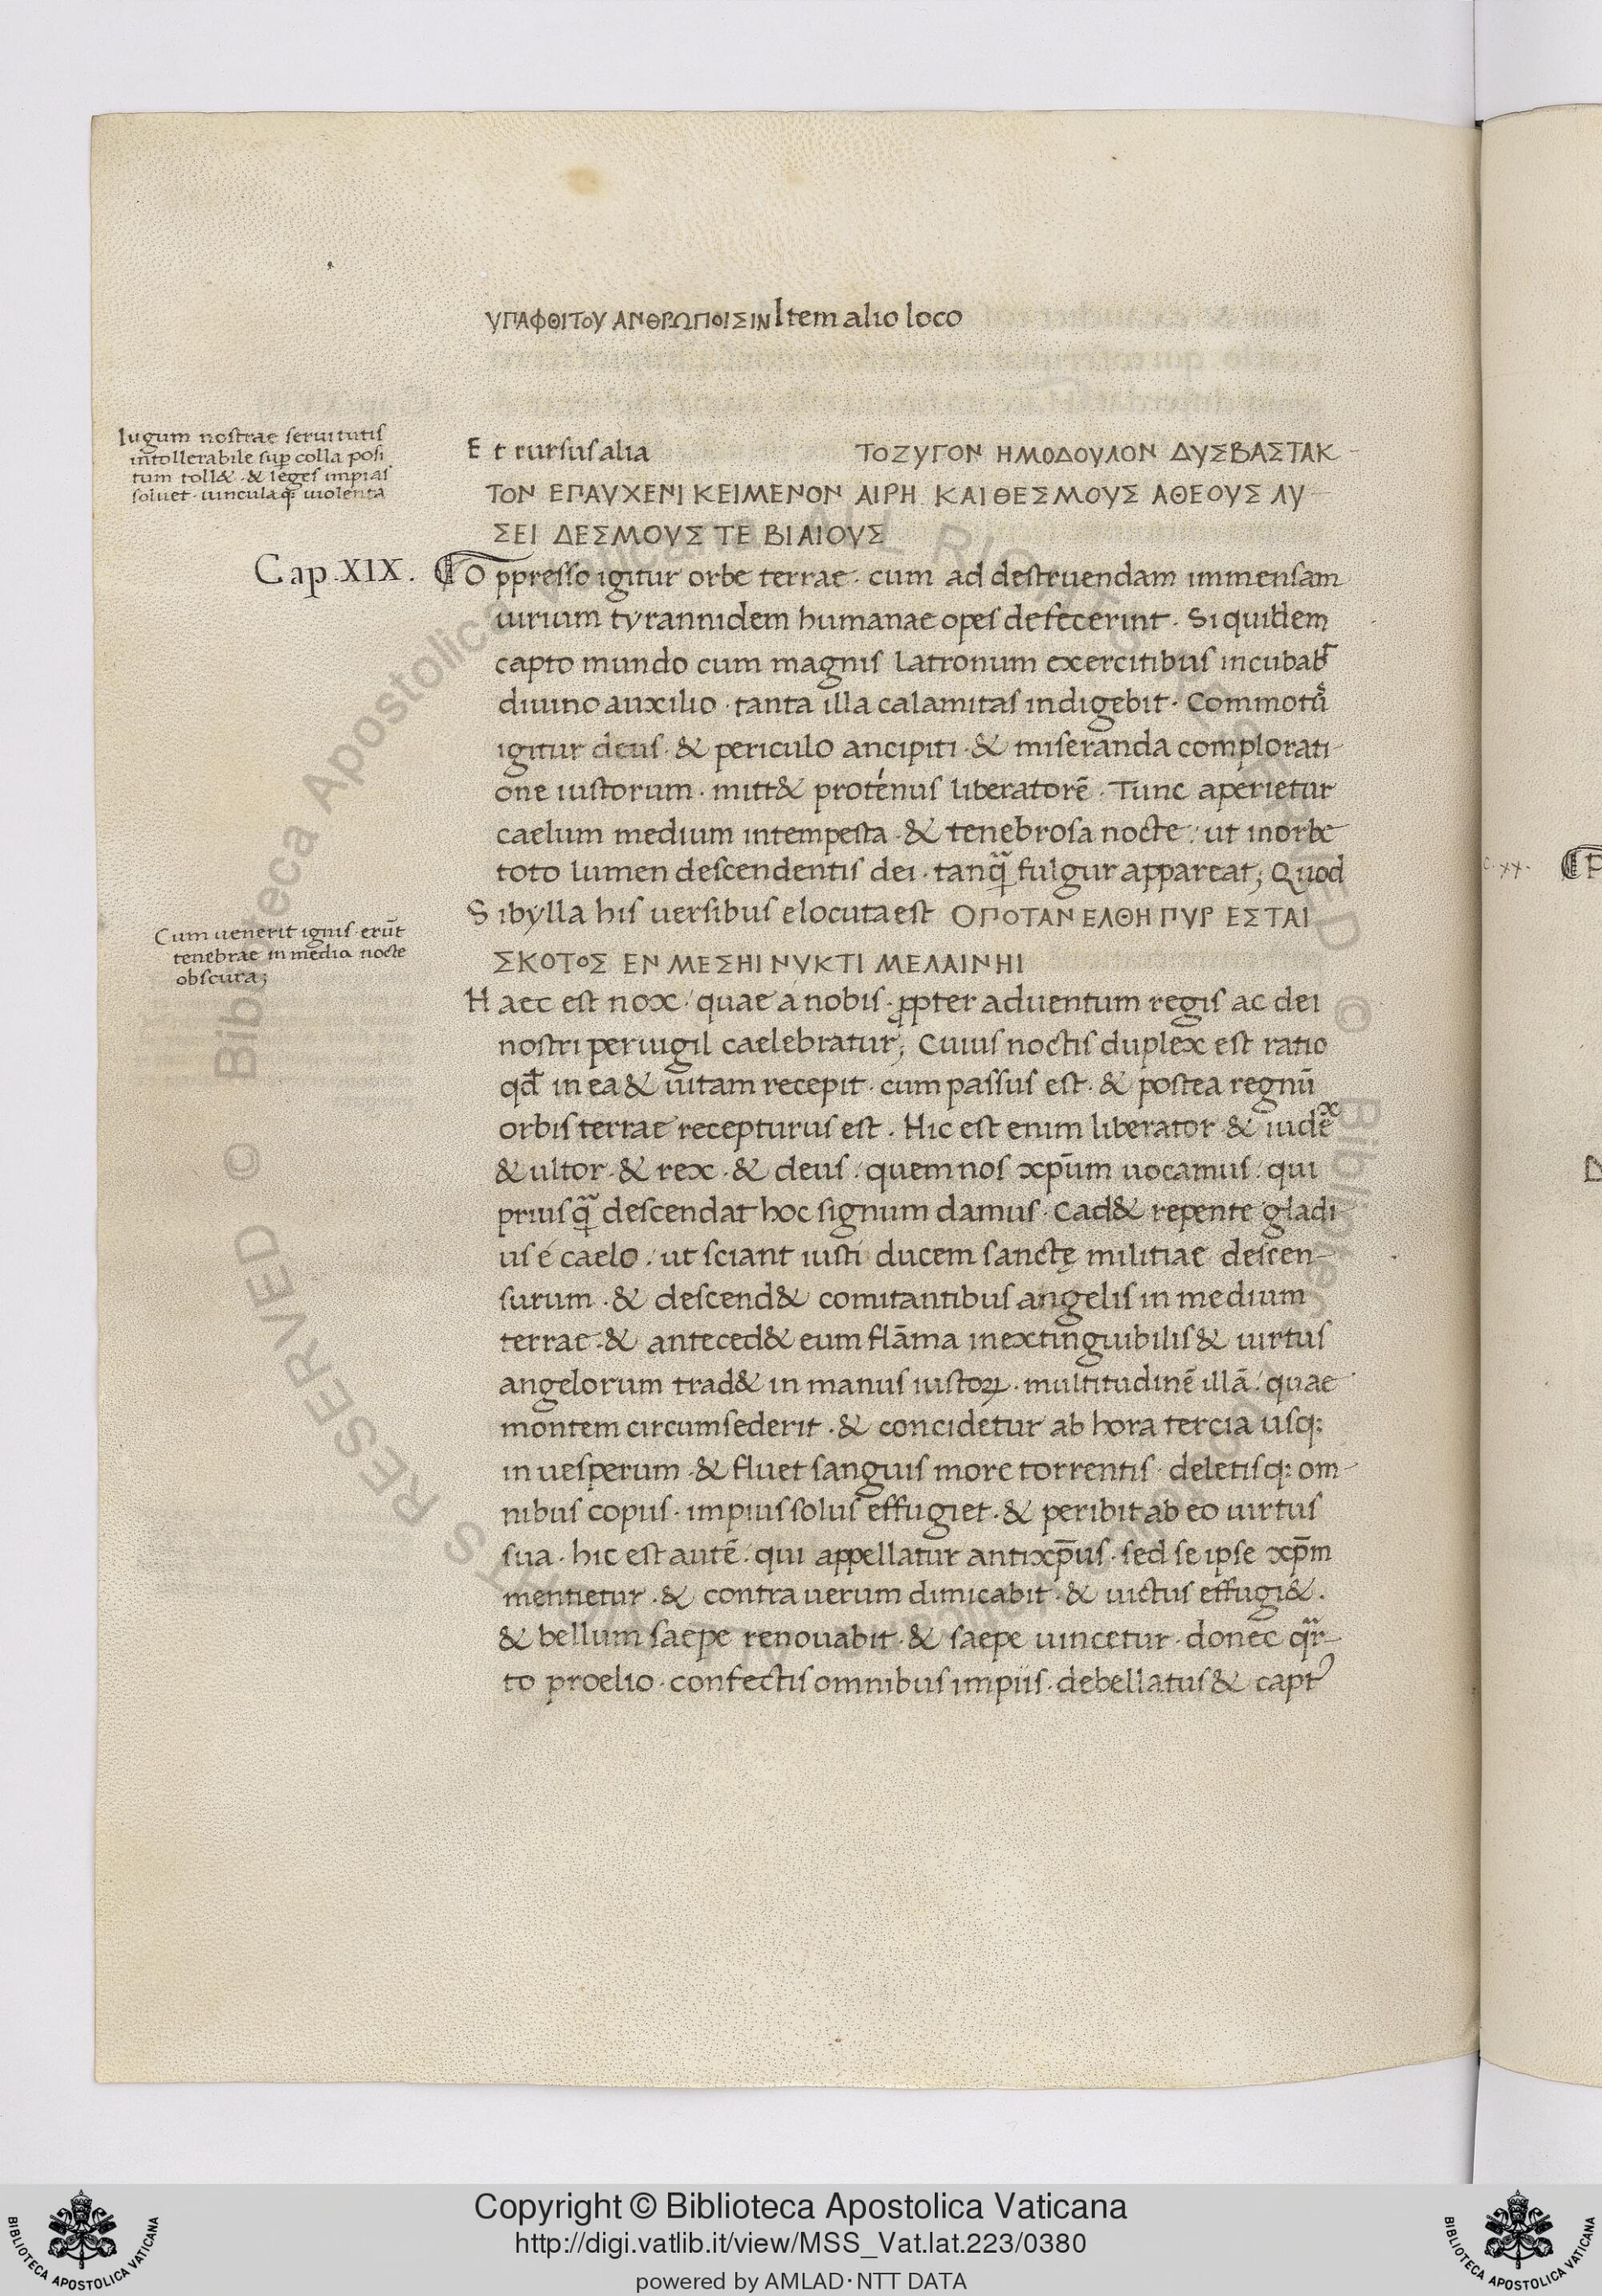 ΥΠΑΦΘΙΤΟΥ ΑΝΘΡΩΠΟΙΣΙΝ Item alio loco
Iugum nostrae seruitutis
intollerabile sup̱ colla posi
tum toll& · & leges impias
soluet · uinculaq; uiolenta
Et rursus alia ΤΟΖΥΓΟΝ ΗΜΟΔΟΥΛΟΝ ΔΥΣΒΑΣΤΑΚ-
ΤΟΝ ΕΠΑΥΧΕΝΙ ΚΕΙΜΕΝΟΝ ΑΙΡΗ ΚΑΙ ΘΕΣΜΟΥΣ ΑΘΕΟΥΣ ΛΥ-
ΣΕΙ ΔΕΣΜΟΥΣ ΤΕ ΒΙΑΙΟΥΣ
Cap. XIX.
Oppresso igitur orbe terrae · cum ad destruendam immensam
uirium tyrannidem humanae opes defecerint · Si quidem
capto mundo cum magnis latronum exercitibus incubab̄
diuino auxilio · tanta illa calamitas indigebit · Commotus
igitur deus · & periculo ancipiti · & miseranda complorati-
one iustorum · mitt& proténus liberatorē · Tunc aperietur
caelum medium intempesta · & tenebrosa nocte · ut in orbe
toto lumen descendentis dei · tanq̄ fulgur appareat; Quod
Sibylla his uersibus elocuta est ΟΠΟΤΑΝ ΕΛΘΗ ΠΥΡ ΕΣΤΑΙ
Cum uenerit ignis · erūt
tenebrae in media nocte
obscura;
ΣΚΟΤΟΣ ΕΝ ΜΕΣΗΙ ΝΥΚΤΙ ΜΕΛΑΙΝΗΙ
Haec est nox · quae á nobis · ꝓpter aduentum regis ac dei
nostri peruigil caelebratur; Cuius noctis duplex est ratio
qđ in ea & uitam recepit · cum passus est · & postea regnū
orbis terrae recepturus est · Hic est enim liberator · & iudex
& ultor · & rex · & deus · quem nos xp̄um uocamus · qui
priusq̄ descendat hoc signum damus · Cad& repente gladi-
us é caelo · ut sciant iusti ducem sanctę militiae descen-
surum · & descend& comitantibus angelis in medium
terrae · & anteced& eum flāma inextinguibilis & uirtus
angelorum trad& in manus iustoꝝ · multitudinē illā · quae
montem circumsederit · & concidetur ab hora tercia usq;
in uesperum · & fluet sanguis more torrentis · deletisq; om-
nibus copiis · impius solus effugiet · & peribit ab eo uirtus
sua · hic est autē · qui appellatur antixp̄us · sed se ipse xp̄m
mentietur · & contra uerum dimicabit · & uictus effugi& ·
& bellum saepe renouabit · & saepe uincetur · donec qr̄-
to proelio · confectis omnibus impiis · debellatus & capt᾽
c. xx.
Copyright © Biblioteca Apostolica Vaticana
http://digi.vatlib.it/view/MSS_Vat.lat.223/0380
powered by AMLAD·NTT DATA
BIBLIOTECA APOSTOLICA VATICANA
BIBLIOTECA APOSTOLICA VATICANA